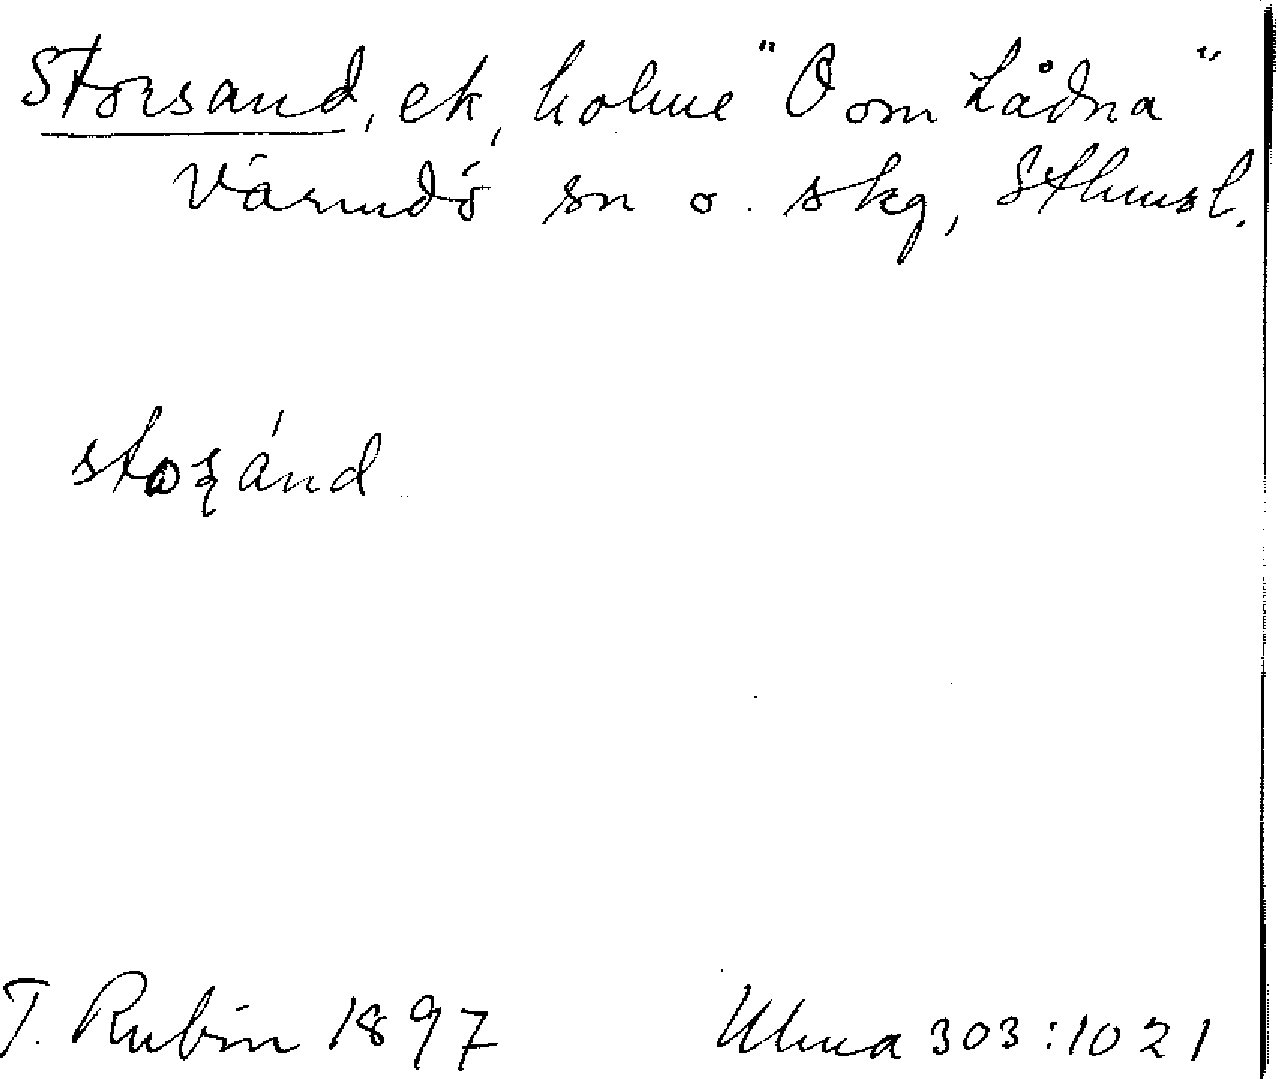 Storsand, ek, holme "O om Lådna"
Värmdö sn o. skg, Sthmsl.
stoʂánd
T. Rubin 1897 Ulma 303:1021